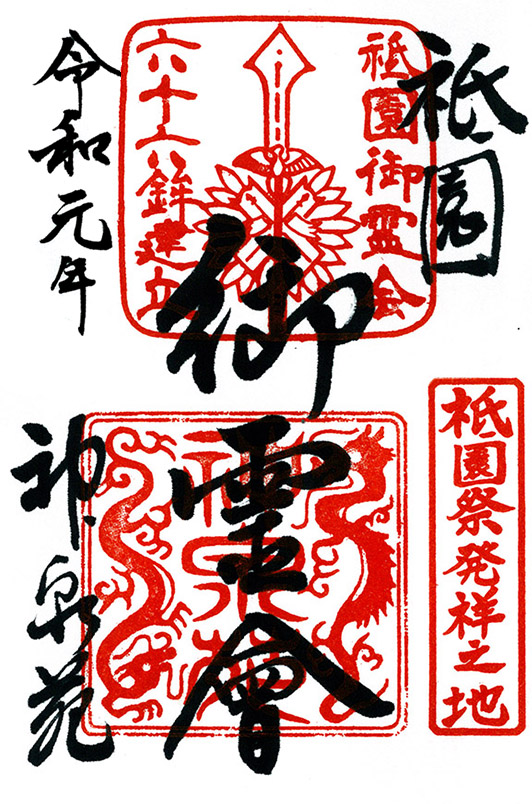 祇園
御靈會
令和元年
神泉苑
祇園御霊会
六十六鉾建立
神泉苑
祇園祭発祥之地